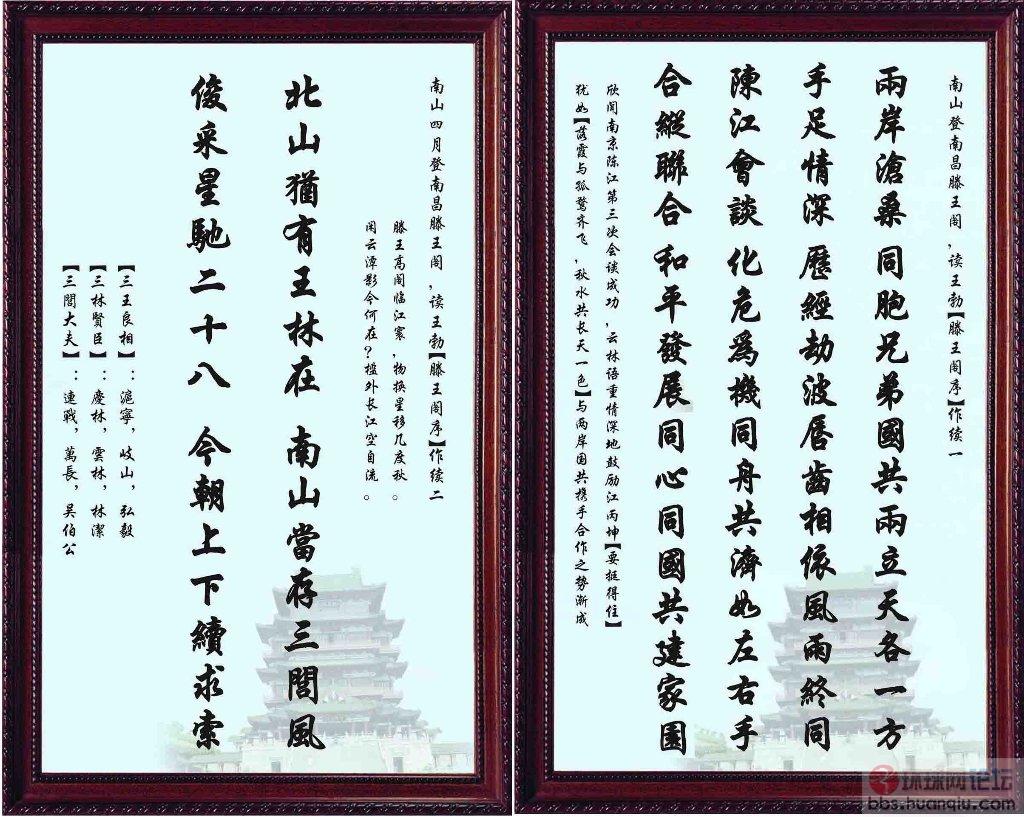 南山登南昌滕王阁，读王勃【滕王阁序】作续一
兩岸滄桑 同胞兄弟國共兩立天各一方
手足情深 歷經劫波唇齒相依風雨終同
陳江會談 化危為機同舟共濟如左右手
合縱聯合 和平發展同心同國共建家園
欣闻南京陈江第三次会谈成功，云林语重情深地鼓励江丙坤【要挺得住】
犹如【落霞与孤鹜齐飞，秋水共长天一色】与两岸国共携手合作之势渐成
南山四月登南昌滕王阁，读王勃【滕王阁序】作续二
滕王高阁临江寰，物换星移几度秋。
闲云潭影今何在？槛外长江空自流。
北山猶有王林在 南山當存三閭風
俊采星馳二十八 今朝上下續求索
【三王良相】：滬寧，岐山，弘毅
【三林賢臣】：慶林，雲林，林潔
【三閭大夫】：連戰，萬長，吴伯公
环球网论坛
bbs.huanqiu.com